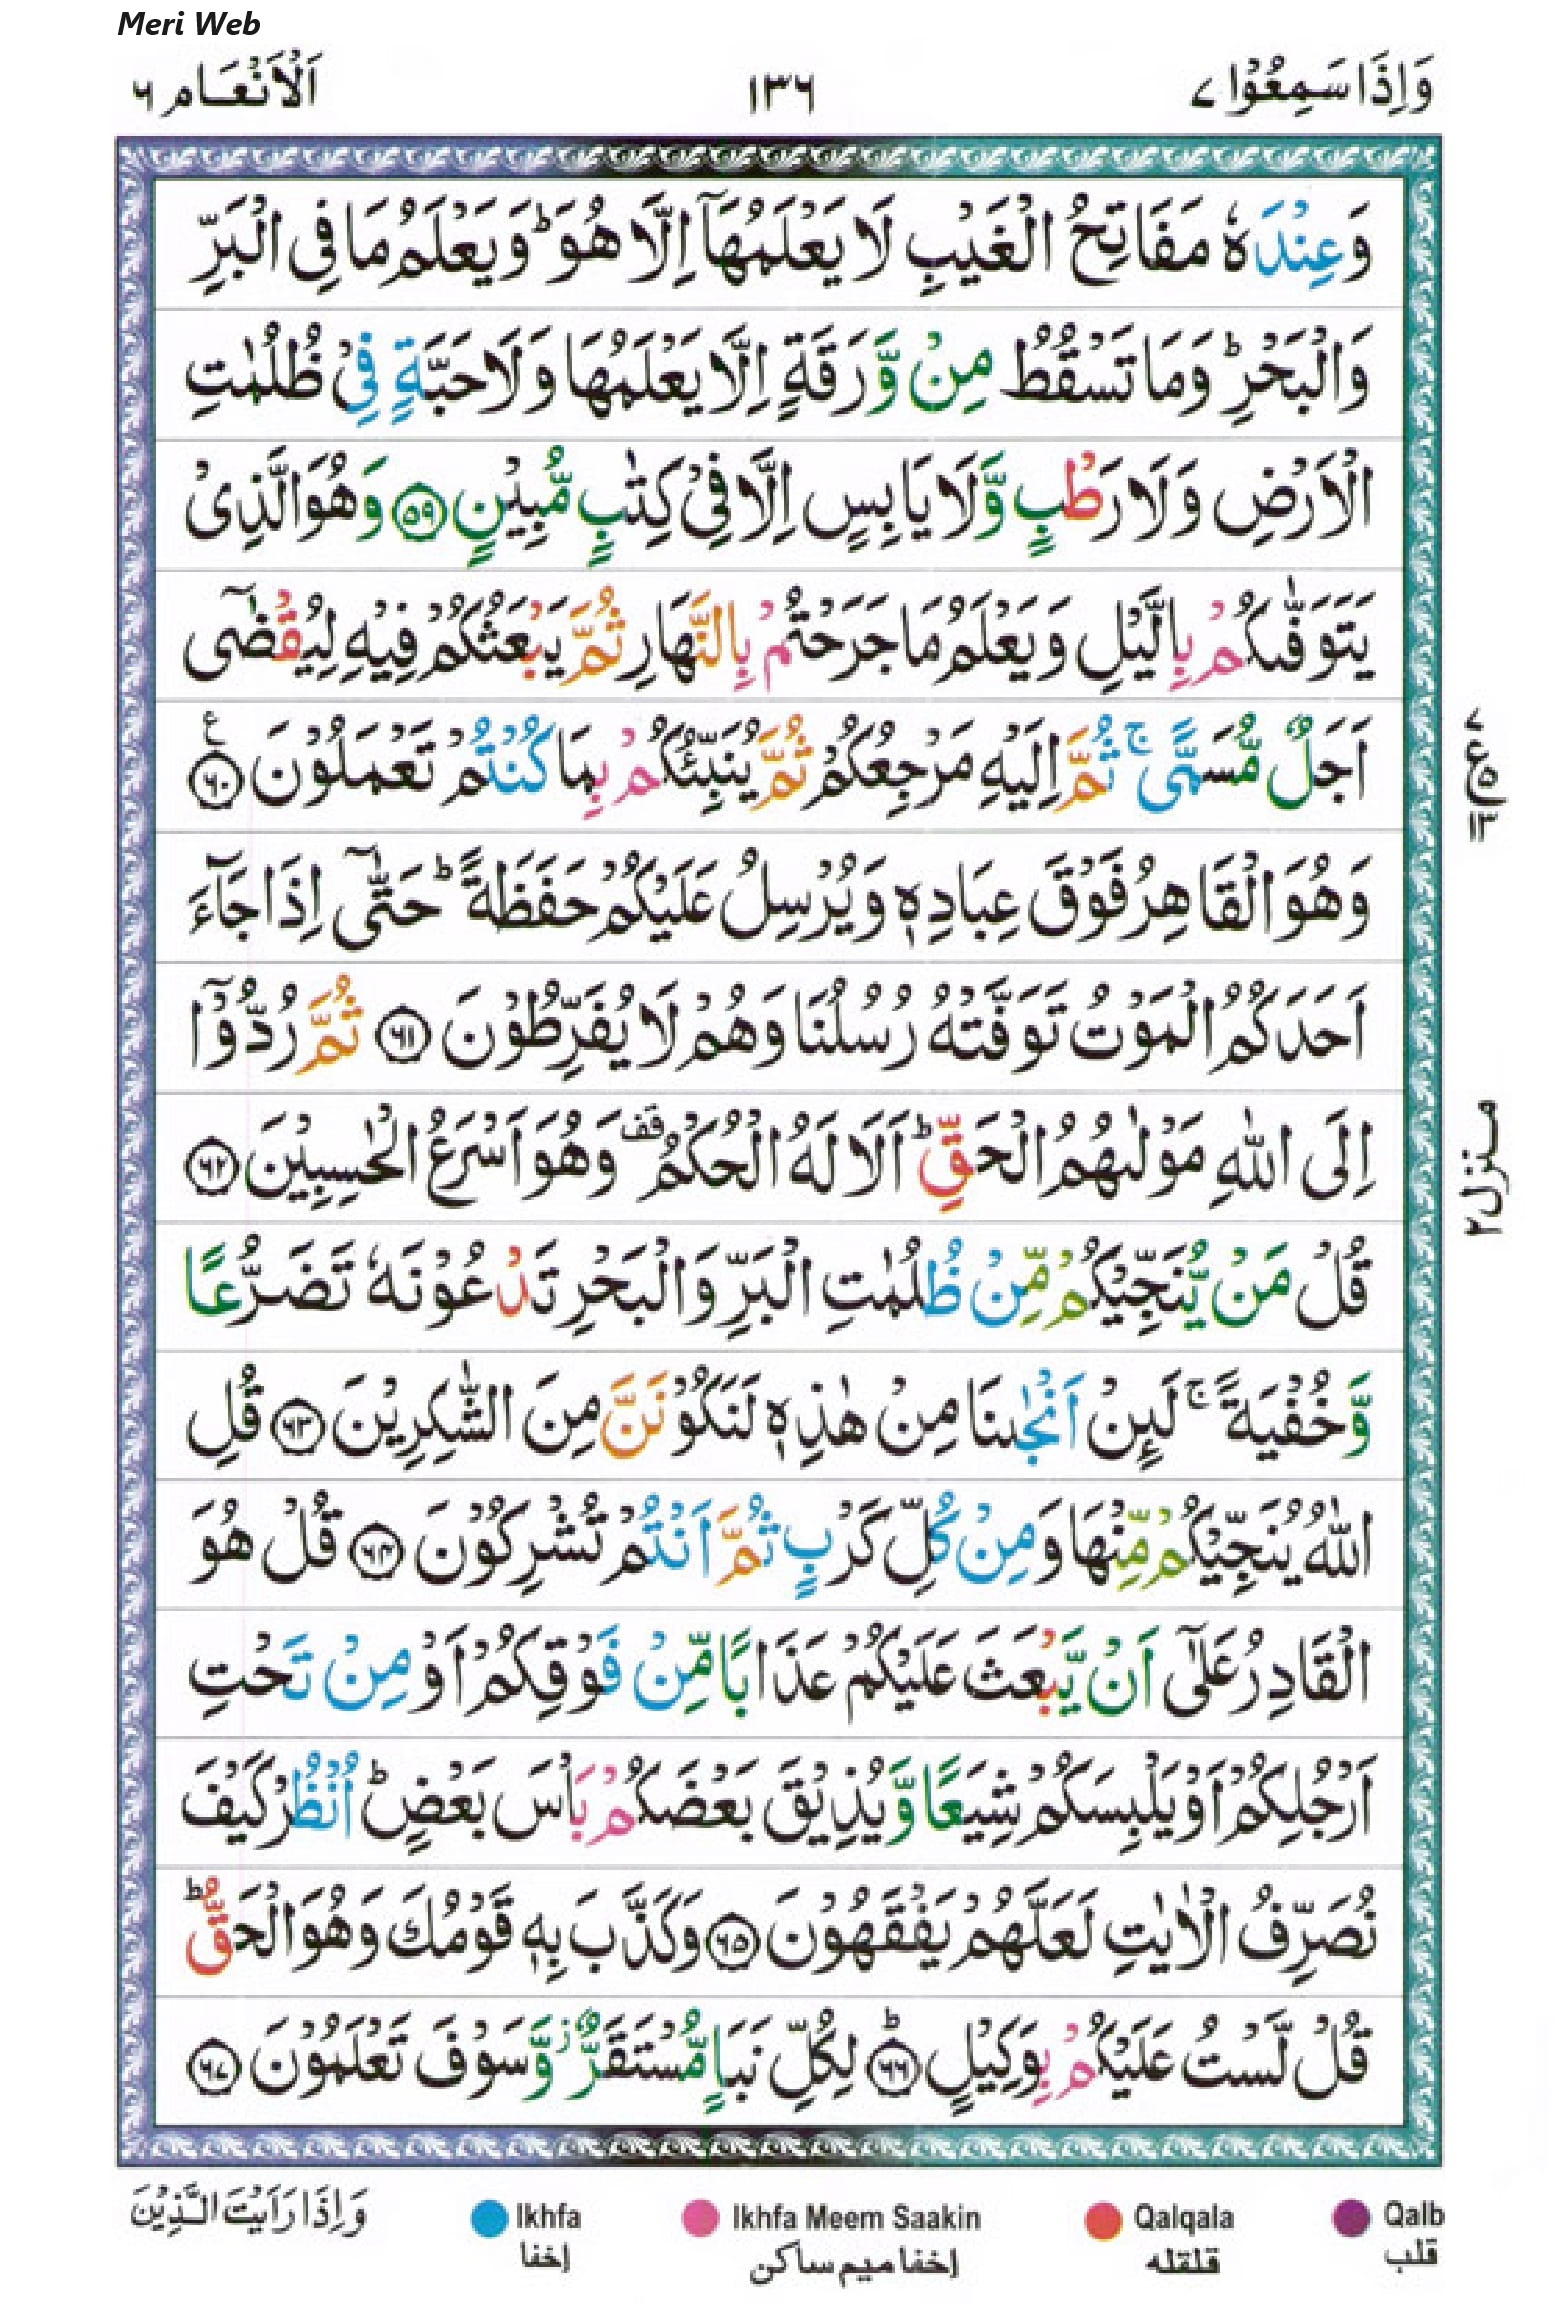 Meri Web
وَاِذَا سَمِعُوْا ٧ ١٣٦ اَلْاَنْعَام ٦
وَعِنْدَهٗ مَفَاتِحُ الْغَيْبِ لَا يَعْلَمُهَاۤ اِلَّا هُوَ ؕ وَيَعْلَمُ مَا فِى الْبَرِّ
وَالْبَحْرِ ؕ وَمَا تَسْقُطُ مِنْ وَّرَقَةٍ اِلَّا يَعْلَمُهَا وَلَا حَبَّةٍ فِىْ ظُلُمٰتِ
الْاَرْضِ وَلَا رَطْبٍ وَّلَا يَابِسٍ اِلَّا فِىْ كِتٰبٍ مُّبِيْنٍ ﴿٥٩﴾ وَهُوَ الَّذِىْ
يَتَوَفّٰٮكُمْ بِالَّيْلِ وَيَعْلَمُ مَا جَرَحْتُمْ بِالنَّهَارِ ثُمَّ يَبْعَثُكُمْ فِيْهِ لِيُقْضٰٓى
اَجَلٌ مُّسَمًّى ۚ ثُمَّ اِلَيْهِ مَرْجِعُكُمْ ثُمَّ يُنَبِّئُكُمْ بِمَا كُنْتُمْ تَعْمَلُوْنَ ﴿٦٠﴾ ع
٧ ع ٥ ١٣
وَهُوَ الْقَاهِرُ فَوْقَ عِبَادِهٖ وَيُرْسِلُ عَلَيْكُمْ حَفَظَةً ؕ حَتّٰٓى اِذَا جَآءَ
اَحَدَكُمُ الْمَوْتُ تَوَفَّتْهُ رُسُلُنَا وَهُمْ لَا يُفَرِّطُوْنَ ﴿٦١﴾ ثُمَّ رُدُّوْۤا
اِلَى اللّٰهِ مَوْلٰٮهُمُ الْحَقِّ ؕ اَلَا لَهُ الْحُكْمُ قف وَهُوَ اَسْرَعُ الْحٰسِبِيْنَ ﴿٦٢﴾
منزل ٢
قُلْ مَنْ يُّنَجِّيْكُمْ مِّنْ ظُلُمٰتِ الْبَرِّ وَالْبَحْرِ تَدْعُوْنَهٗ تَضَرُّعًا
وَّخُفْيَةً ۚ لَٮِٕنْ اَنْجٰٮنَا مِنْ هٰذِهٖ لَنَكُوْنَنَّ مِنَ الشّٰكِرِيْنَ ﴿٦٣﴾ قُلِ
اللّٰهُ يُنَجِّيْكُمْ مِّنْهَا وَمِنْ كُلِّ كَرْبٍ ثُمَّ اَنْتُمْ تُشْرِكُوْنَ ﴿٦٤﴾ قُلْ هُوَ
الْقَادِرُ عَلٰٓى اَنْ يَّبْعَثَ عَلَيْكُمْ عَذَابًا مِّنْ فَوْقِكُمْ اَوْ مِنْ تَحْتِ
اَرْجُلِكُمْ اَوْ يَلْبِسَكُمْ شِيَعًا وَّيُذِيْقَ بَعْضَكُمْ بَاْسَ بَعْضٍ ؕ اُنْظُرْ كَيْفَ
نُصَرِّفُ الْاٰيٰتِ لَعَلَّهُمْ يَفْقَهُوْنَ ﴿٦٥﴾ وَكَذَّبَ بِهٖ قَوْمُكَ وَهُوَ الْحَقُّ ؕ
قُلْ لَّسْتُ عَلَيْكُمْ بِوَكِيْلٍ ؕ ﴿٦٦﴾ لِكُلِّ نَبَاٍ مُّسْتَقَرٌّ ز وَّسَوْفَ تَعْلَمُوْنَ ﴿٦٧﴾
وَاِذَا رَاَيْتَ الَّذِيْنَ
Ikhfa Ikhfa Meem Saakin Qalqala Qalb
اخفا اخفا ميم ساكن قلقله قلب